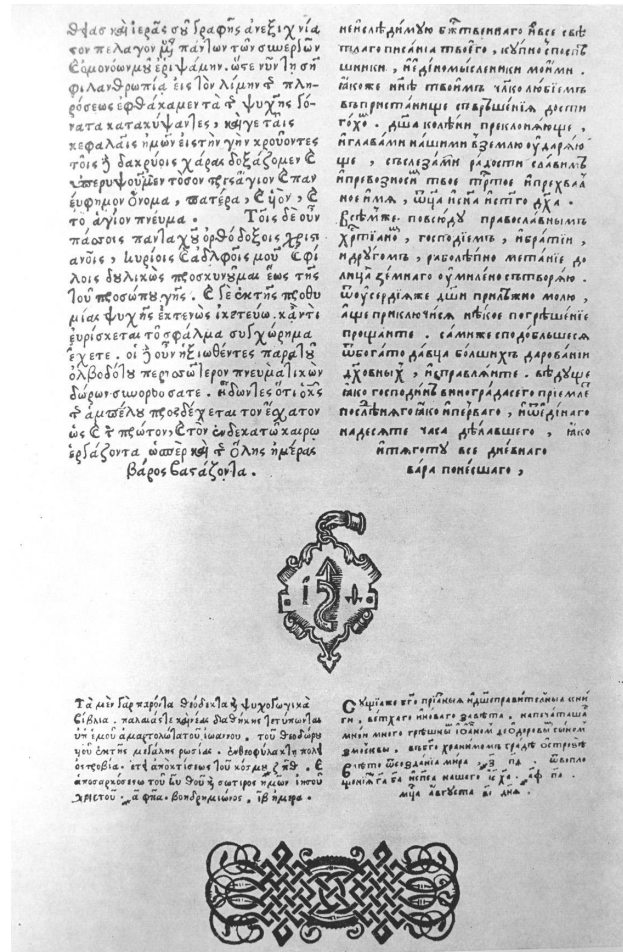 τον πέλαγον πάντων τῶν συνεργῶν
ὁμονόων μου ἐριψάμην. ὥστε νῦν τῇ σῇ
φιλανθρωπία εἰς τὸν λίμην τῆς πλη-
ρόσεως ἐφθάκαμεν τὰ τῆς ψυχῆς γό-
νατα κατακύψαντες, καὶ γε ταῖς
κεφαλαῖς ἡμῶν εἰς τὴν γῆν κρούοντες
τοῖς δακρύοις χαρᾶς δοξάζομεν
ὑπερυψοῦμεν τὸσον ἅγιον
εύφημον ὄνομα, πατέρα, ϗ υἱὸν, ϗ
τὸ ἅγιον πνεῦμα. Τοῖς δὲ οὖν
πάσοις πανταχοῦ ὀρθόδοξοις χριστ
ανοῖς, κυρίοις ϗ ἀδλφοῖς μου ϗ φί
λοις δυλικῶς προσκυνῦμαι ἕως τῆς
τοῦ προσώπου γῆς. ϗ δὲ ἐκ τῆς προθυ
μίας ψυχῆς ἐκτενῶς ἱκετεύω. κἄν τι
ευρίσκεται τὸ σφάλμα συγχώρημα
ἔχετε. οἱ οὖν ἠξιωθέντες παρὰ τοῦ
ὀλβοδότου περισσότερον πνευματικῶν
δώρων
τῆς ἀμπέλου προσδέχεται τὸν ἔσχατον
ὡς ϗ τὸν πρῶτον, ϗ τὸν ἑνδεκάτω καιρω
ἐργάζοντα ὥσπερ καὶ τῆς ὅλης ἡμέρας
βάρος βατάζοντα.
неизслѣдимую бж҃твеннаго и все свѣ
тлаго писанїа твоего, купно съпоспѣ
шники, и единомысленики моими.
ꙗкоже нн҃ѣ твоимъ чл҃колюбїемъ
въ пристанище съвръшенїѧ дости
гохо. дш҃а колѣни преклонѧюще,
и главами нашими в землю оударѧю
ще, съ слезами радости славимъ
и превозноси твое трⷭ҇тое и прехвал
ное имѧ, ѿц҃а и сн҃а и ст҃го дх҃а.
Всѣм же повсюду православнымъ
хрⷭ҇тїано, господїемъ, и братїи,
и другомъ, раболѣпно метанїе до
лица земнаго оумилено сътворѧю.
ѿ оусердїѧ же дш҃и прилѣжно молю,
аще приключисѧ нѣкое погрѣшенїе
прощаите. сами же сподобльшесѧ
ѿ богато давца болшихъ дарованїи
дх҃овныхъ, исправлѧите. вѣдуще
ꙗко господинъ винограда сего прїемле
послѣнѧго ꙗко и перваго, и ѿ единаго
надесѧте часа дѣлавшего, ꙗко
и тѧготу все дневнаго
вара понесшаго,
Τὰ μὲν γὰρ παρόντα θεόδεκτα ψυχοφωγικὰ
βίβλια. παλαιάς τε καὶ νέας διαθήκης τετύπωνται
ὑπ ἐμοῦ ἁμαρτολωτάτου ἰωάνου. τοῦ θεοδώρου
υἱοῦ ἐκ τῆς μεγάλης ῥωσίας. ἐν θεοφυλάκτῃ πόλῃ
ὀστροβία. ἔτη ἀπὸ κτίσεως τοῦ κόσμου ζπθ. ϗ
ἀπὸ σαρκόσεως τοῦ κυ θεοῦ ϗ σωτῖρος ἡμῶν ἰησοῦ
χριστοῦ. αφπα. βοηδρημιῶνος. ιβ ἡμέρα.
Сущїа же сїѧ прїаныѧ и дш҃еправителныа кни
ги, ветхаго и новаго завѣта. напечаташа
мною многогрѣшны іѡанном ѳеѡдоровы сыном
з москвы, в бг҃охранимом градѣ острозѣ
в лѣто ѿ создания мира, ҂зпѳ. ѿ вопло
щенїѧ га ба и спса нашего іс ха. ҂афпа.
мц҃а августа ві днѧ.